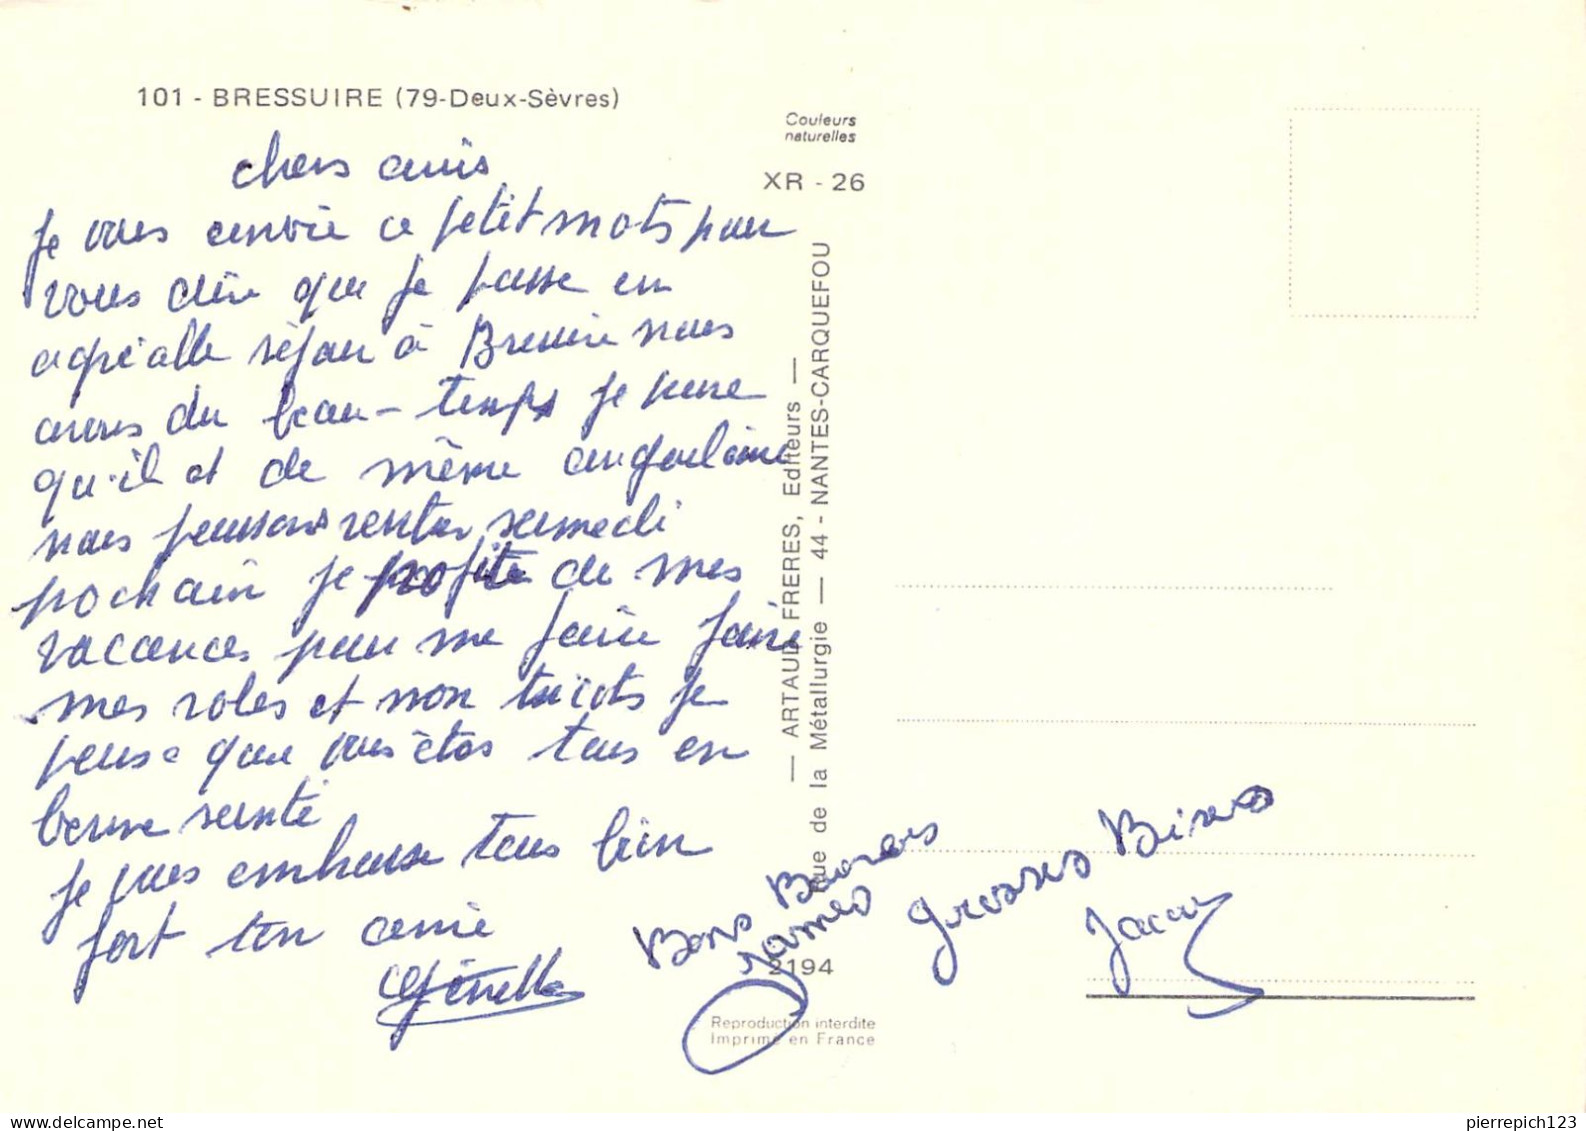 101 - BRESSUIRE (79-Deux-Sèvres)
chers amis
je vous envoie ce petit mots pour
vous dire que je passe en
agréable séjour à Bressuire nous
avons du beau-temps je pense
qu'il et de même angoulème
nous pensons rentrer samedi
prochain je profite de mes
vacances pour me faire faire
mes robes et mon tricots je
pense que vous êtes tous en
bonne santé
je vous embrasse tous bien
fort ton amie
Ginette
Bons Baisers
James
Grosses Bises
Jacky
Couleurs
naturelles
XR - 26
— ARTAUD FRERES, Editeurs —
rue de la Métallurgie — 44 - NANTES-CARQUEFOU
2194
Reproduction interdite
Imprimé en France
pierrepich123